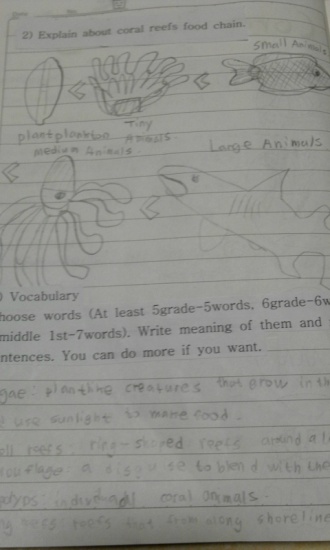 2) Explain about coral reefs food chain.
small Animals
< < 
plantplankton
Tiny
Animals.
medium Animals.
Large Animals
< <
) Vocabulary
hoose words (At least 5grade-5words, 6grade-6w
middle 1st-7words). Write meaning of them and
ntences. You can do more if you want.
gae: plantlike creatures that grow in th
use sunlight to make food.
reefs: ring-shaped reefs around a l
mouflage: a disguise to blend with the
polyps: individual coral animals.
reefs: reefs that from along shoreline